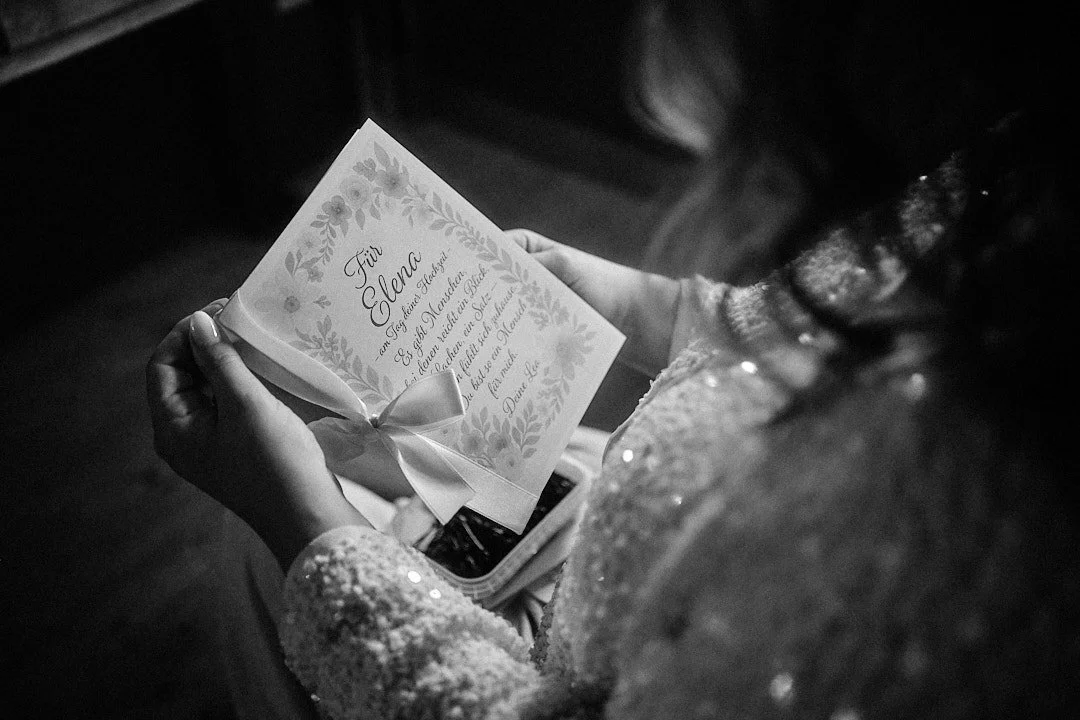 Für
Elena
- am Tag deiner Hochzeit -
Es gibt Menschen,
denen reicht ein Blick,
ein Satz –
fühlt sich zuhause
Du bist so ein Mensch
für mich.
Deine Lea